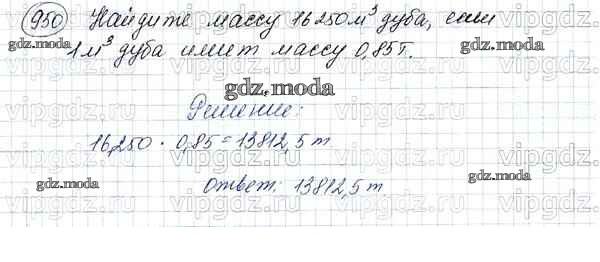 950 Найдите массу 16250м³ дуба, если
1м³ дуба имеет массу 0,85т.
gdz.moda
gdz.moda
vipgdz.ru vipgdz.ru vipgdz.ru vipgdz.ru
Решение:
16,250 · 0,85 = 13812,5 т
vipgdz.ru vipgdz.ru vipgdz.ru vipgdz.ru
gdz.moda gdz.moda gdz.moda
Ответ: 13812,5 т
vipgdz.ru vipgdz.ru vipgdz.ru vipgdz.ru